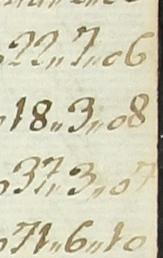 22〃7〃06
18〃3〃08
37〃3〃07
71〃6〃10